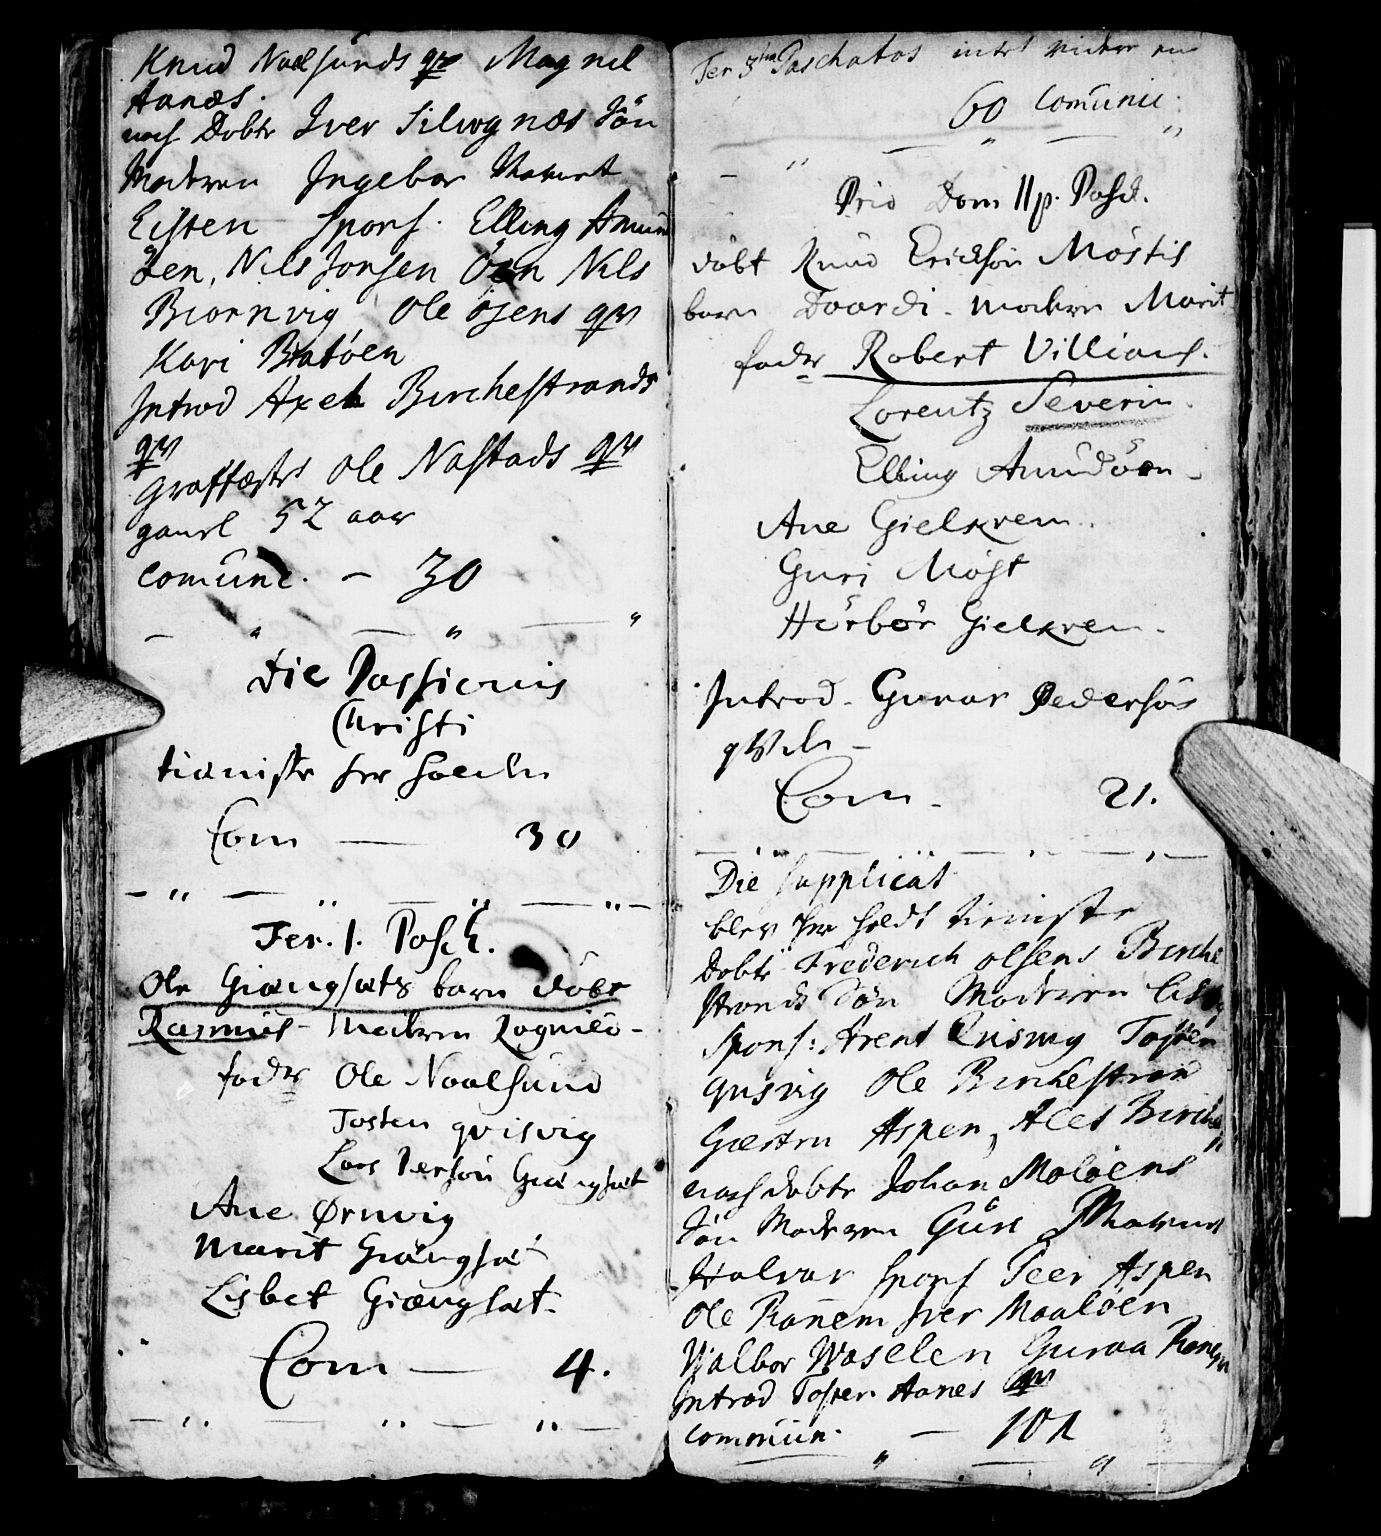 Knud Naalsunds qv Magnil
Aanæs.
noch Dobte Iver Silwgnæs Sön
Moderen Ingebor Navnet
Eisten Spons. Elling Amun
Nils Jonsen Öen Nils
Biornvig Ole ösens qv
Kari Bratöen
Introd Axel Birchestrands
qv
Graffæste Ole Nastads qv
gaml 52 aar
comunic. – 30
Die Passionis
Christi
tieniste her holden
Com — 30
Fer. 1. Pasch.
Ole Giængsæts barn döbt
Rasmus - moderen Ragnild -
fadr Ole Naalsund
Tosten qvisvig
Lars Persön Giængsæt
Ane Ørnvig
Marit Giængsæt
Lisbet Giængsæt.
Com — 4.
Fer 3tia Paschatos intet videre en
60 Comunic.
Dom p. Pasch.
döbt Knud Erichsön Möstis
barn Edvardi - moderen Marit
fadr Robert Villiams.
Lorentz Severin.
Elling Amundöen -
Ane Gielkrem.
Guri Möst
Hörbör Gielkrem.
Introd - Gunar Pedersöns
qv
Com - 21.
Die Supplicat
blev her holdt tieniste
Dobte Frederich olsens Birche
strands Sön Moderen
Spons: Arent Qvisvig Tosten
qvisvig Ole Birchestran
Giertru Aspen, Ales Birche
noch dobte Johan Maløens
Sön Moderen Guri Navnet
Halvar Spons Peer Aspen
Ole Ranem Iver Maaløen
Walbor Waselen Guraa Ranem
Introd Tosten Aanes qv
Commun. — 101